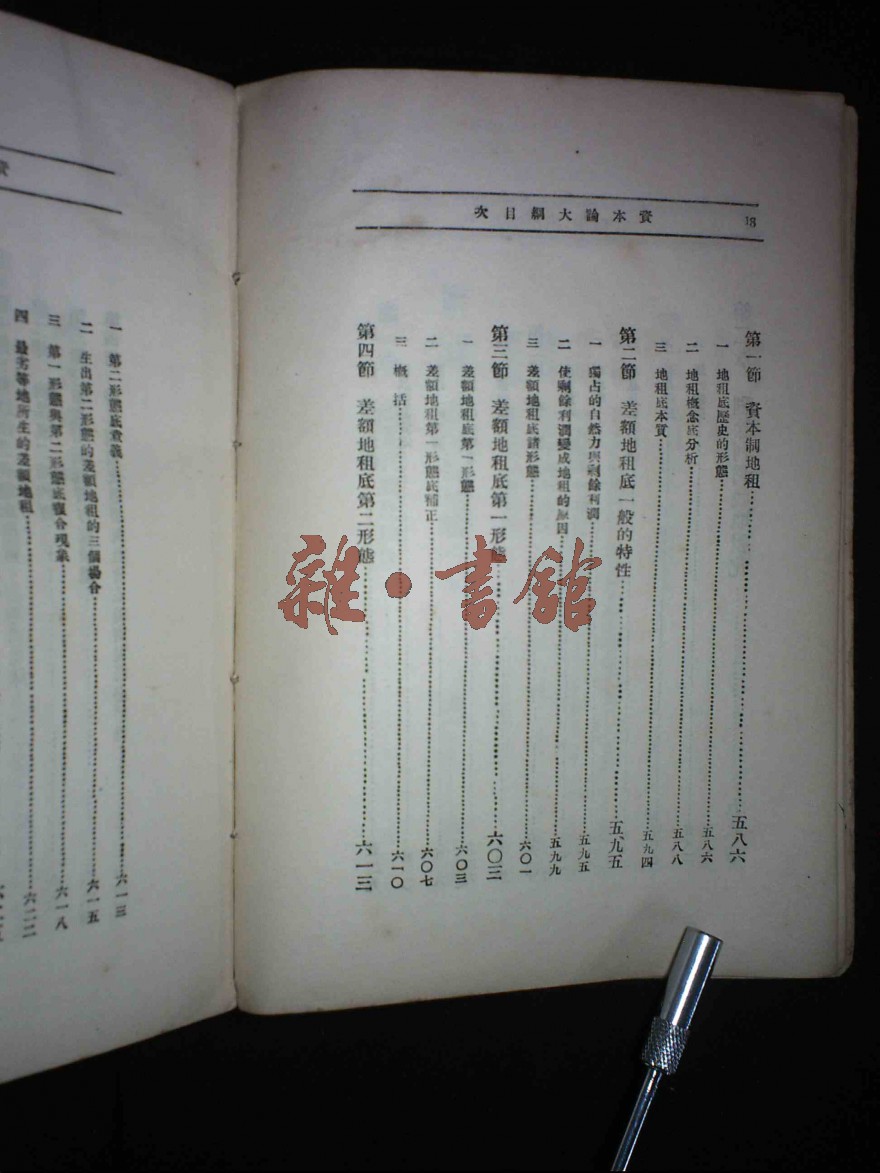 資本論大綱目次 18
第一節 資本制地租 五八六
一 地租底歷史的形態 五八六
二 地租概念底分析 五八八
三 地租底本質 五九四
第二節 差額地租底一般的特性 五九五
一 獨占的自然力與剩餘利潤 五九五
二 使剩餘利潤變成地租的原因 五九九
三 差額地租底諸形態 六〇一
第三節 差額地租底第一形態 六〇三
一 差額地租底第一形態 六〇三
二 差額地租第一形態底補正 六〇七
三 概括 六一〇
第四節 差額地租底第二形態 六一三
一 第二形態底意義 六一三
二 生出第二形態的差額地租的三個場合 六一五
三 第一形態與第二形態底複合現象 六一八
四 最劣等地所生的差額地租 六二二
雜·書館